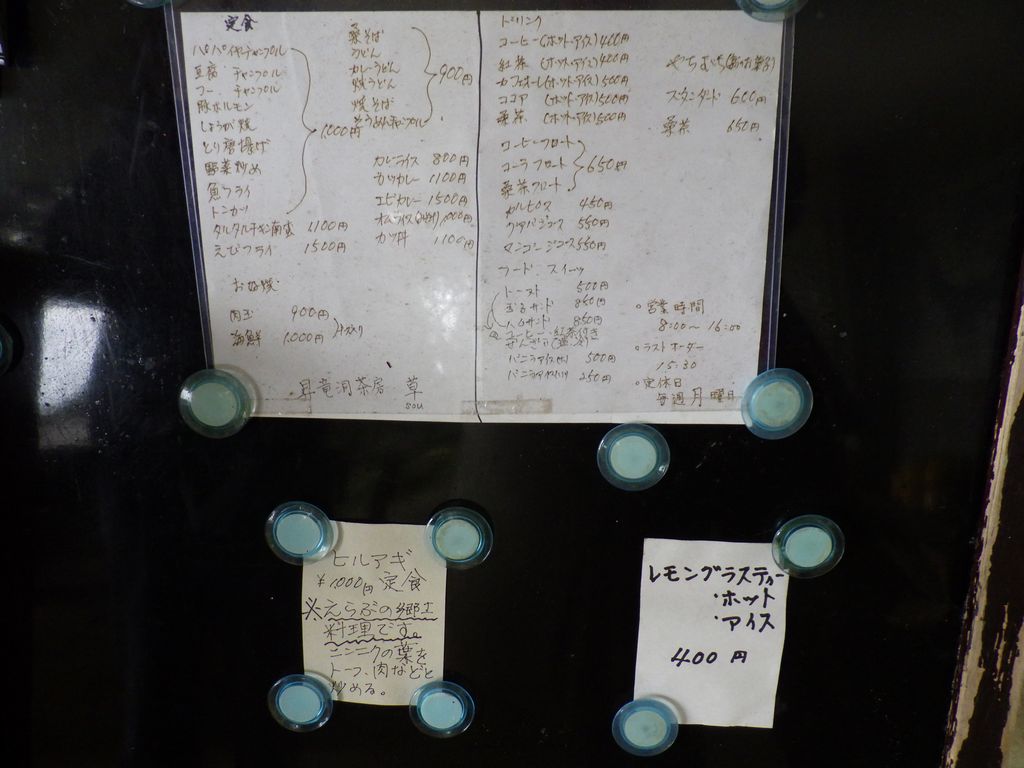 定食
パパイヤチャンプル
豆腐 チャンプル
フー チャンプル
豚ホルモン
しょうが焼
とり唐揚げ
野菜炒め
魚フライ
トンカツ
1,000円
タルタルチキン南蛮 1,100円
えびフライ 1500円
お好焼
肉玉 900円
海鮮 1,000円
桑そば
うどん
カレーうどん
焼うどん
焼そば
そうめんチャンプル
900円
カレーライス 800円
カツカレー 1100円
エビカレー 1500円
オムライス 1,000円
カツ丼 1,100円
昇竜洞茶房 草
sou
ドリンク
コーヒー(ホット・アイス)400円
紅茶 (ホット・アイス)400円
カフェオーレ(ホット・アイス)500円
ココア (ホット・アイス)500円
桑茶 (ホット・アイス)500円
コーヒーフロート
コーラフロート
桑茶フロート
650円
カルピス 450円
グァバジュース 550円
マンゴージュース 550円
フード・スイーツ
トースト 500円
玉子サンド 850円
ハムサンド 850円
コーヒー・紅茶付き
ぜんざい
バニラアイス 500円
バニラアイス 250円
やちむち
スタンダード 600円
桑茶 650円
・営業時間
8:00〜16:00
・ラストオーダー
15:30
・定休日
毎週月曜日
ヒルアギ
¥1,000円 定食
※えらぶの郷土
料理です。
ニンニクの葉を
トーフ、肉などと
炒める。
レモングラスティー
・ホット
・アイス
400円